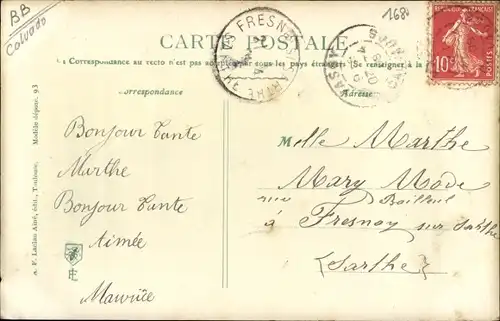 BB
Calvados
168
CARTE POSTALE
La Correspondance au recto n'est pas acceptée par tous les pays étrangers (Se renseigner à la
FRESNAY
SARTHE
VASSY
REPUBLIQUE FRANÇAISE
10
Correspondance
Adresse
Bonjour Tante
Marthe
Bonjour Tante
Aimée
Maurice
Melle Marthe
Mary Mode
rue Bailleul
à Fresnay sur Sarthe
(Sarthe)
A. F. Laclau Aîné, édit., Toulouse. Modèle déposé. 93